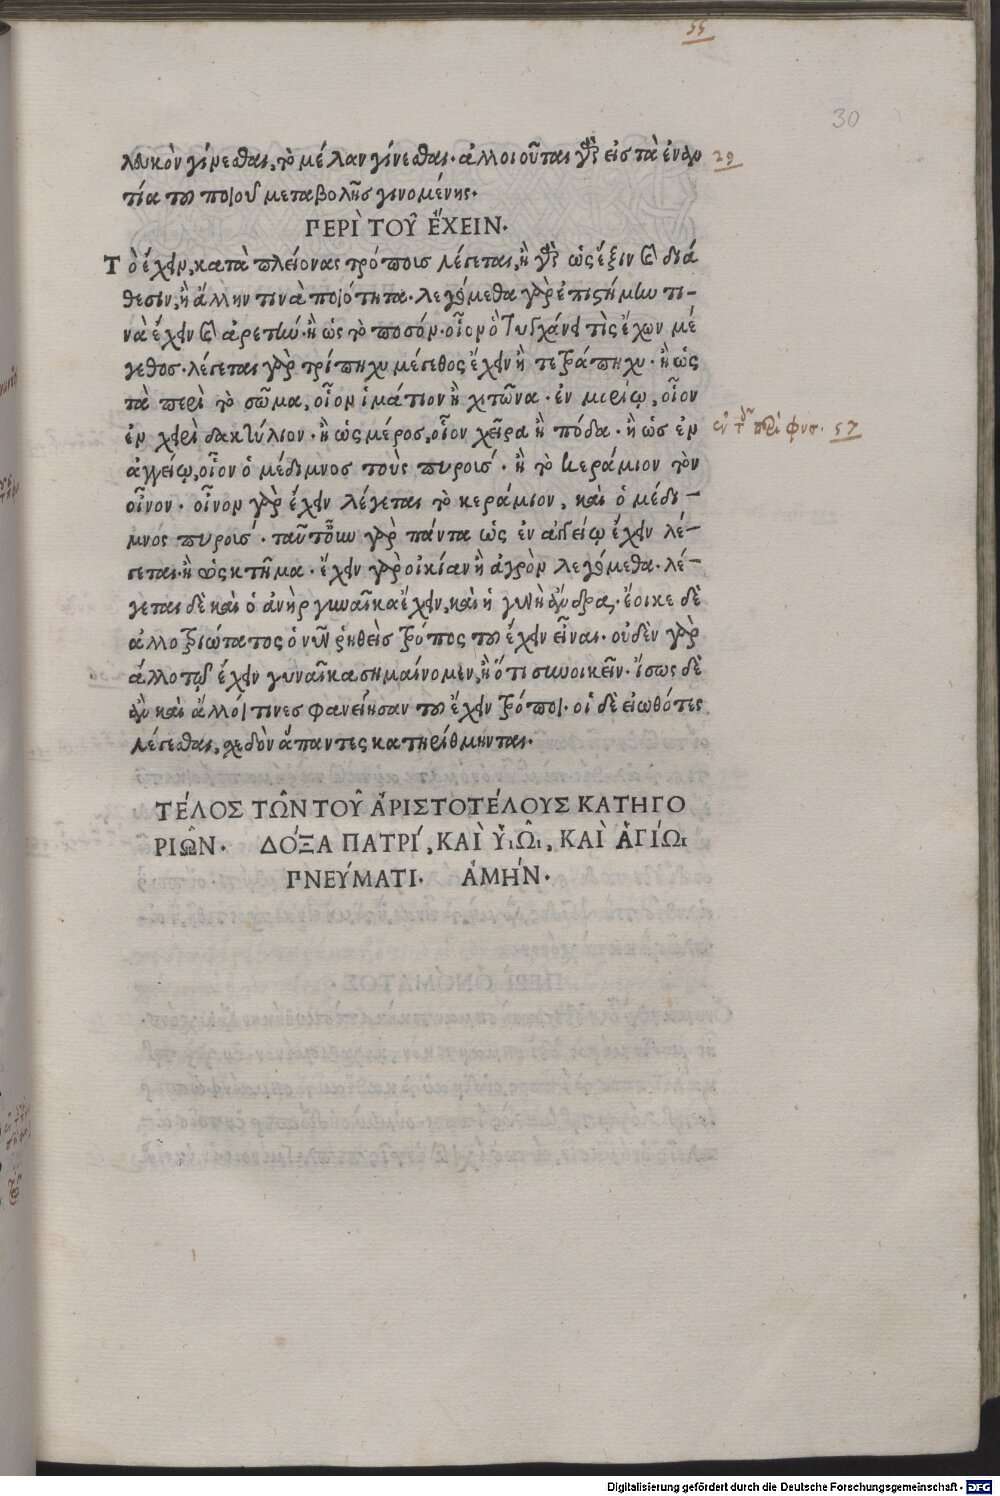 55
30
λευκὸν γίνεσθαι, τὸ μέλαν γίνεσθαι· ἀλλοιοῦται γὰρ εἰς τὰ ἐναν
τία τοῦ ποιοῦ μεταβολῆς γινομένης·
29
ΠΕΡῚ ΤΟΥ͂ ἜΧΕΙΝ·
Τὸ ἔχειν, κατὰ πλείονας τρόπους λέγεται, ἢ γὰρ ὡς ἕξιν καὶ διά
θεσιν, ἢ ἄλλην τινὰ ποιότητα· λεγόμεθα γὰρ ἐπιστήμην τι-
νὰ ἔχειν καὶ ἀρετήν· ἢ ὡς τὸ ποσόν· οἷον ὃ τυγχάνει τὶς ἔχων μέ
γεθος· λέγεται γὰρ τρίπηχυ μέγεθος ἔχειν ἢ τετράπηχυ· ἢ ὡς
τὰ περὶ τὸ σῶμα, οἷον ἱμάτιον ἢ χιτῶνα· ἐν μορίῳ, οἷον
ἐν χειρὶ δακτύλιον· ἢ ὡς μέρος, οἷον χεῖρα ἢ πόδα· ἢ ὡς ἐν
57
ἀγγείῳ, οἷον ὁ μέδιμνος τοὺς πυρούς· ἢ τὸ κεράμιον τὸν
οἶνον· οἶνον γὰρ ἔχειν λέγεται τὸ κεράμιον, καὶ ὁ μέδι-
μνός πυρούς· ταῦτ' οὖν γὰρ πάντα ὡς ἐν ἀγγείῳ ἔχειν λέ-
γεται· ἢ ὡς κτῆμα· ἔχειν γὰρ οἰκίαν ἢ ἀγρὸν λεγόμεθα· λέ-
γεται δὲ καὶ ὁ ἀνὴρ γυναῖκα ἔχειν, καὶ ἡ γυνὴ ἄνδρα· ἔοικε δὲ
ἀλλοτριώτατος ὁ νῦν ῥηθεὶς τρόπος τοῦ ἔχειν εἶναι· οὐδὲν γὰρ
ἄλλο τῷ ἔχειν γυναῖκα σημαίνομεν, ἢ ὅτι συνοικεῖν· ἴσως δὲ
ἂν καὶ ἄλλοι τινες φανείησαν τοῦ ἔχειν τρόποι· οἱ δὲ εἰωθότες
λέγεσθαι, σχεδὸν ἅπαντες κατηρίθμηνται·
ΤΈΛΟΣ ΤΩ͂Ν ΤΟΥ͂ ἈΡΙΣΤΟΤΈΛΟΥΣ ΚΑΤΗΓΟ
ΡΙΩ͂Ν· ΔΌΞΑ ΠΑΤΡΊ, ΚΑῚ ὙΙΩ͂Ι, ΚΑῚ ἉΓΊΩΙ
ΠΝΕΎΜΑΤΙ· ἈΜΉΝ·
Digitalisierung gefördert durch die Deutsche Forschungsgemeinschaft - DFG